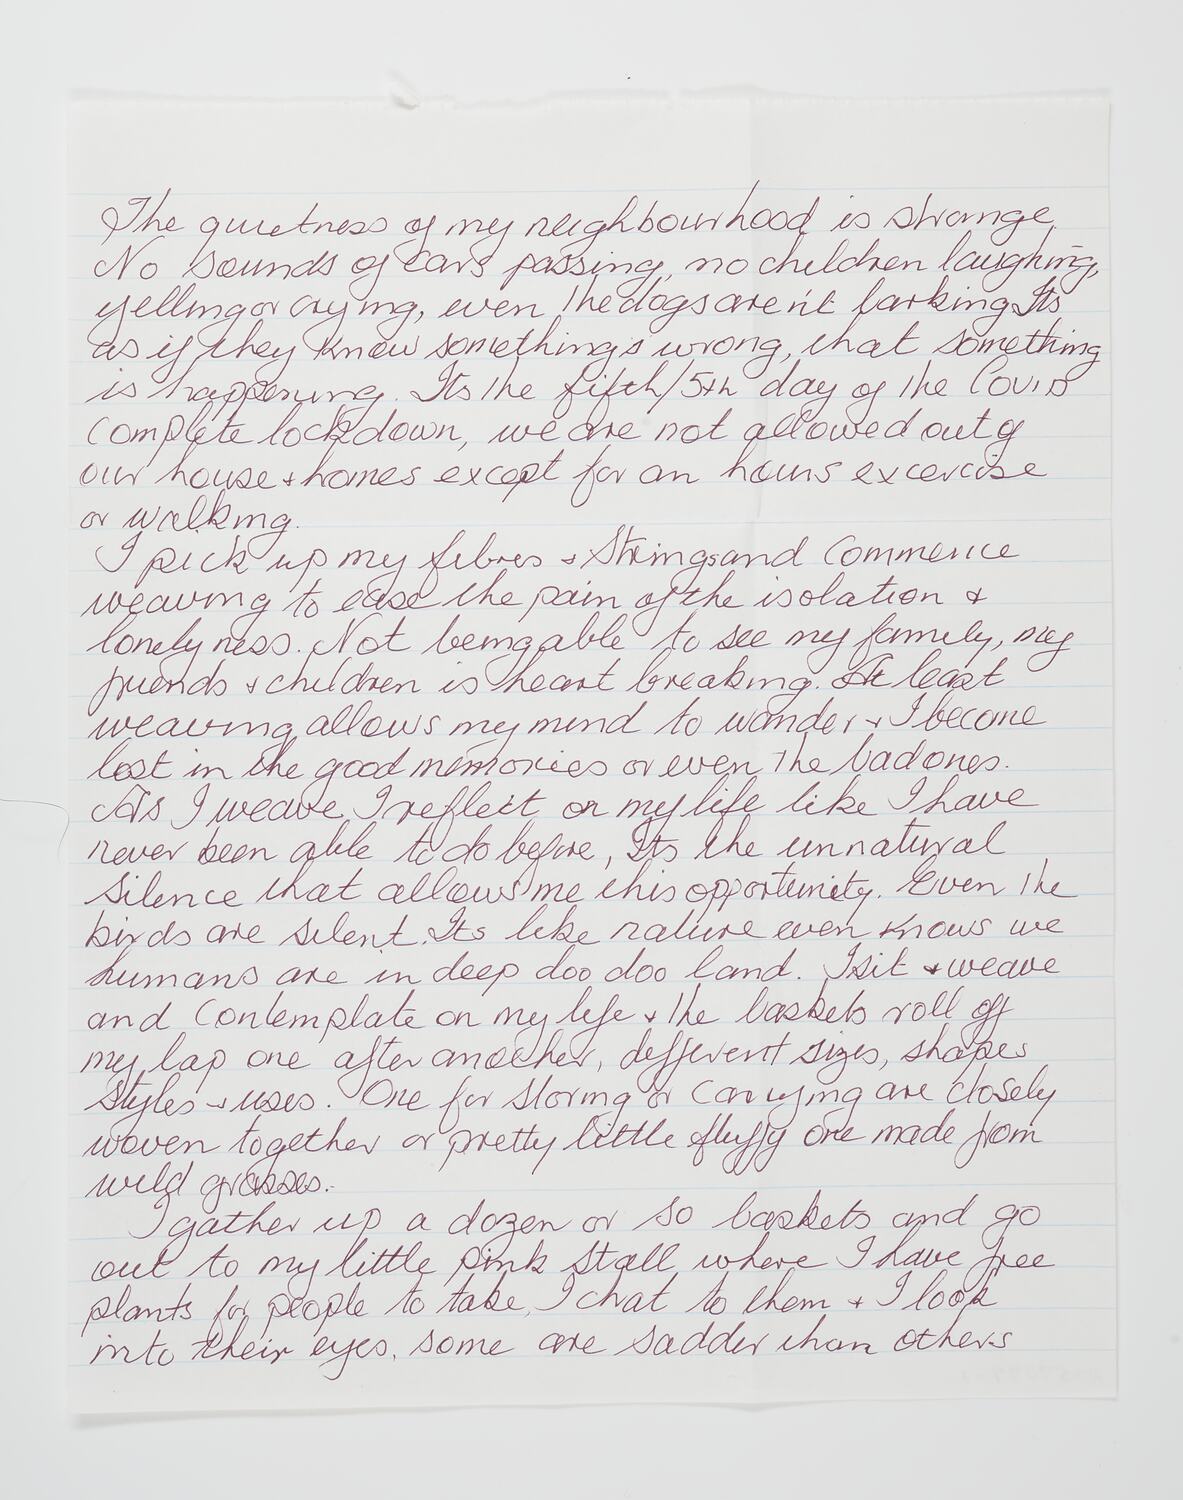 The quietness of my neighbourhood is strange.
No sounds of cars passing, no children laughing,
yelling or crying, even the dogs aren't barking Its
as if they know something's wrong, that something
is happening. Its the fifth/5th day of the Covid
Complete lockdown, we are not allowed out of
our house + homes except for an hours excercise
or walking.
I pick up my fibres + Strings and Commence
weaving to ease the pain of the isolation +
lonelyness. Not being able to see my family, my
friends + children is heart breaking. At least
weaving allows my mind to wander + I become
lost in the good memories or even the bad ones.
As I weave, I reflect on my life like I have
never been able to do before, Its the unnatural
Silence that allows me this opportunity. Even the
birds are silent. Its like nature even knows we
humans are in deep doo doo land. I sit + weave
and Contemplate on my life + the baskets roll off
my lap one after another, different sizes, shapes
Styles + uses. One for storing or Carrying are closely
woven together or pretty little fluffy one made from
wild grasses.
I gather up a dozen or so baskets and go
out to my little pink Stall where I have free
plants for people to take, I chat to them + I look
into their eyes, some are sadder than others